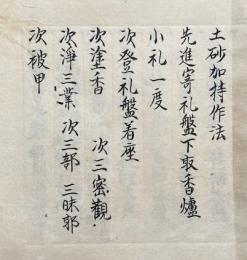 土砂加持作法
先進寄礼盤下取香爐
小礼一度
次登礼盤着座
次塗香　次三密觀
次淨三業 次三部 三昧耶
次被甲